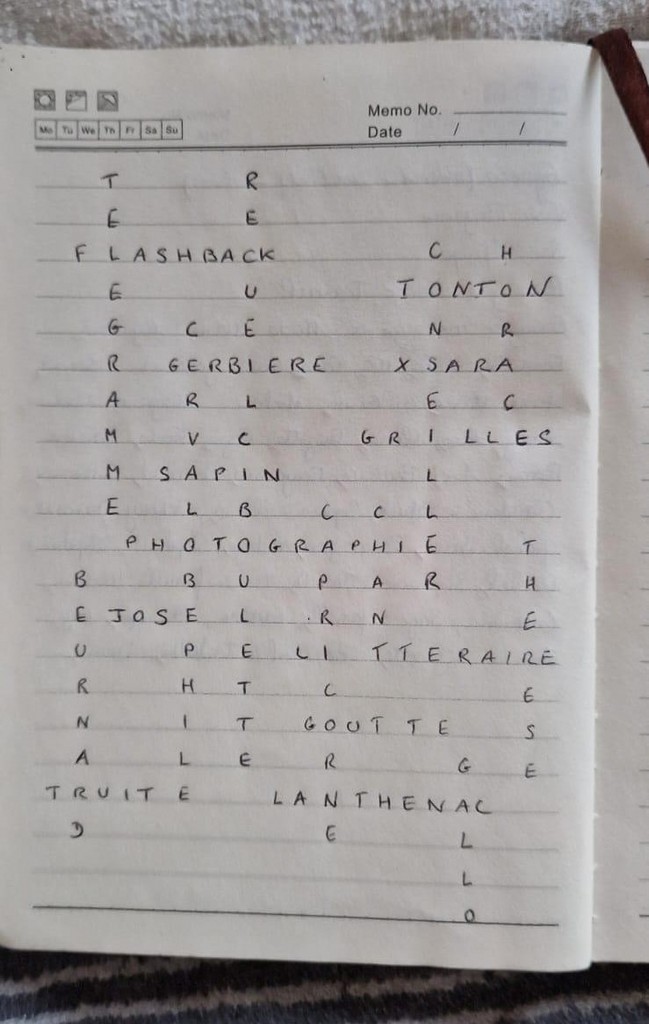 Memo No.
Mo Tu We Th Fr Sa Su
Date / /
T R
E E
FLASHBACK C H
E U TONTON
G C E N R
R GERBIERE XSARA
A R L E C
M V C GRILLES
M SAPIN L
E L B C C L
PHOTOGRAPHIE T
B B U P A R H
E JOSE L R N E
U P E LITTERAIRE
R H T C E
N I T GOUTTE S
A L E R G E
TRUITE LANTHENAC
D E L
L
O